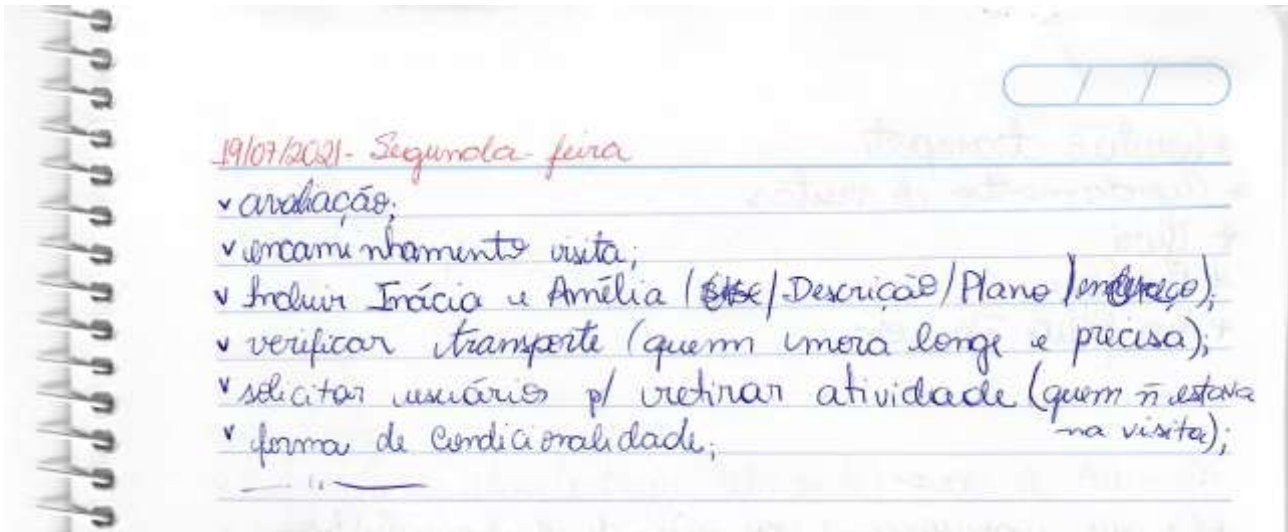 19/07/2021 - Segunda-feira
v avaliação;
v encaminhamento visita;
v Incluir Inácia e Amélia ( /Descrição/Plano/endereço);
v verificar transporte (quem mora longe e precisa);
v solicitar usuários p/ retirar atividade (quem ñ estava
na visita);
v forma de condicionalidade;